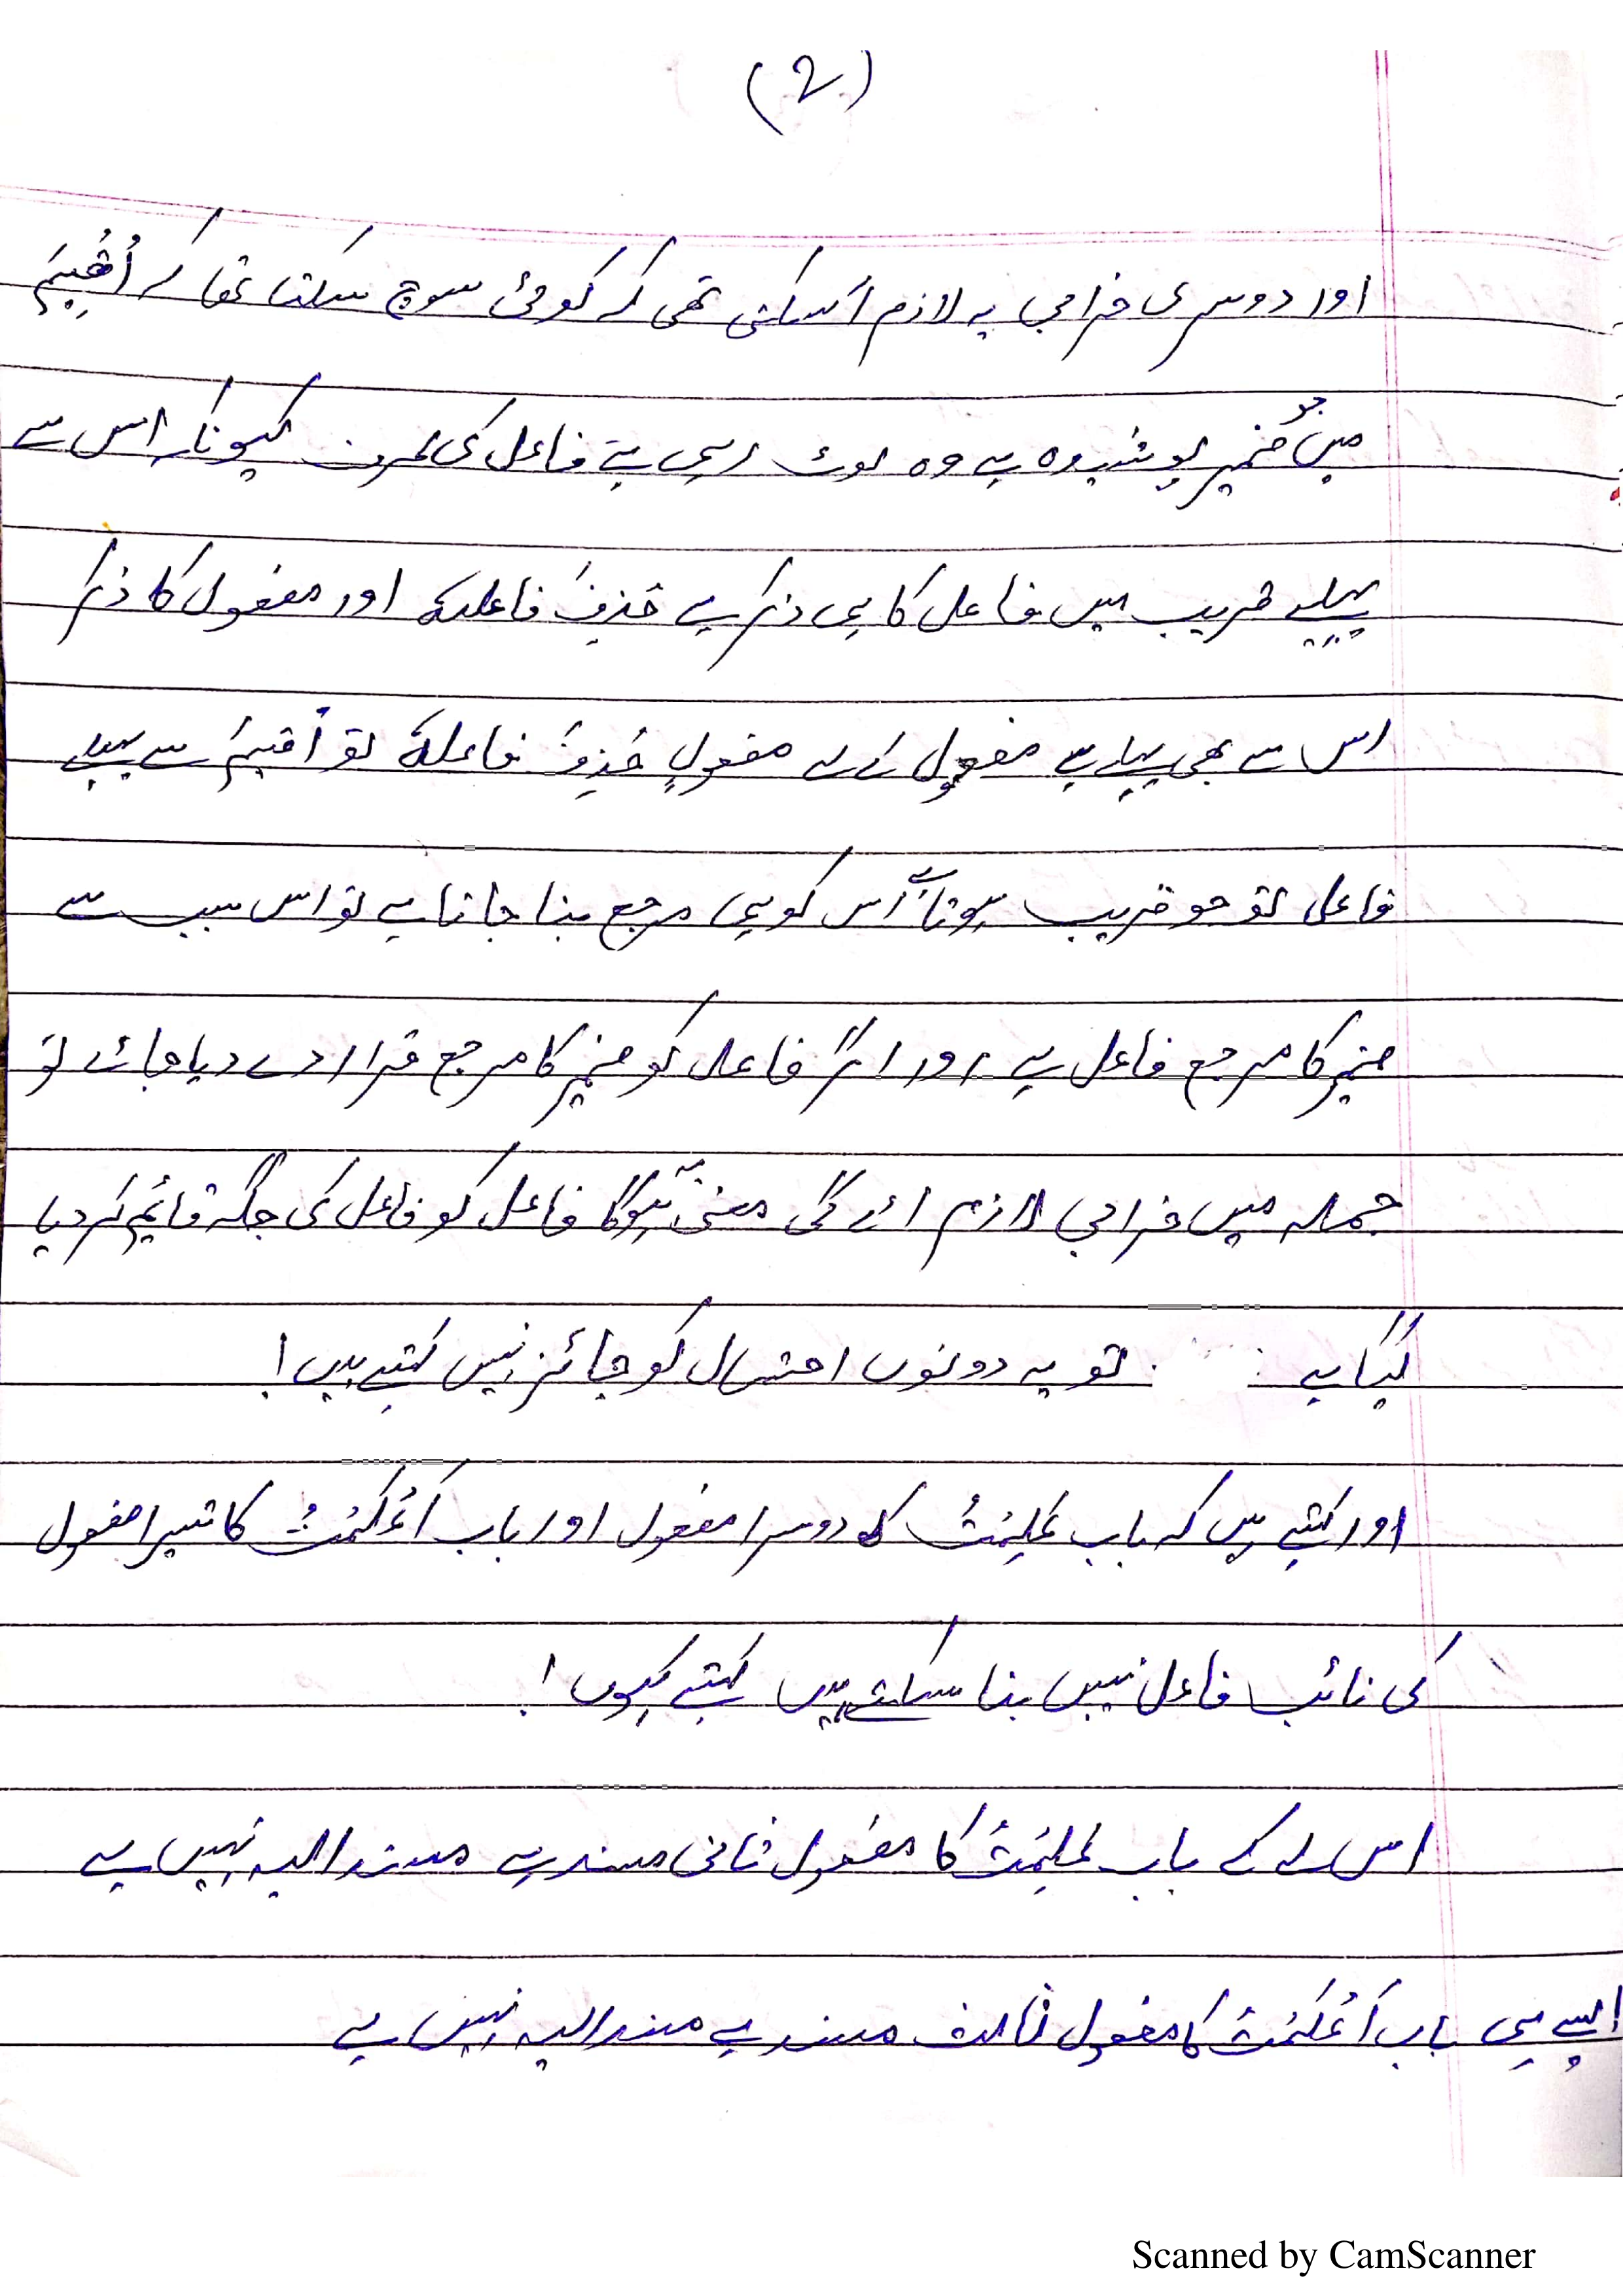 (2)
اور دوسری خرابی یہ لازم آسکتی تھی کہ کوئی سوچ سکتا تھا کہ أُقِيمَ
میں جو ضمیر پوشیدہ ہے وہ لوٹ رہی ہے فاعل کی طرف کیونکہ اس سے
پہلے قریب میں فاعل کا ہی ذکر ہے حُذِفَ فاعلهُ اور مفعول کا ذکر
اس سے بھی پہلے ہے مفعول کے لے مفعولٍ حُذِفَ فاعلهُ تو أُقيمَ سے پہلے
فاعل تو جو قریب ہوتا ہے اُس کو ہی مرجع بنا جاتا ہے تو اس سبب سے
ضمیر کا مرجع فاعل ہے اور اگر فاعل کو ضمیر کا مرجع قرار دے دیا جائے تو
جملہ میں خرابی لازم ائے گی معنی یہ ہوگا فاعل کو فاعل کی جگہ قائم کر دیا
گیا ہے . تو یہ دونوں احتمال کو جائز نہیں کہتے ہیں!
اور کہتے ہیں کہ باب عَلِمْتُ کا دوسرا مفعول اور باب أَعْلَمْتُ کا تیسرا مفعول
کی نائب فاعل نہیں بنا سکتے ہیں کہتے کیوں!
اس لے کے باب عَلِمْتُ کا مفعول ثانی مسند ہے مسند الیہ نہیں ہے
ایسے ہی باب أَعْلَمْتُ کا مفعول ثالث مسند ہے مسند الیہ نہیں ہے
Scanned by CamScanner